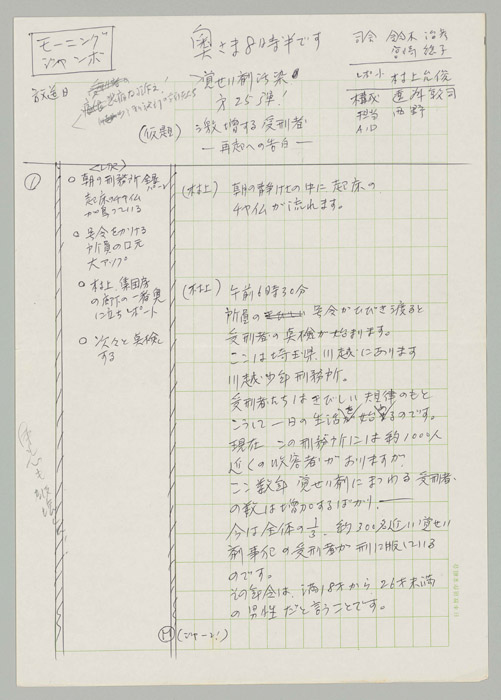 モーニング
ジャンボ
奥さま8時半です
司会 鈴木治彦
宮崎総子
レポート 村上允俊
構成
担当
A.D
放送日
覚せい剤汚染
第25弾!
(仮題) 激増する受刑者
―再起への告白―
①
<VTR>
○ 朝の刑務所全景
起床のチャイム
が鳴っている
○ 号令をかける
所員の口元
大アップ
○ 村上、集団房
の廊下の一番奥
に立ちレポート
○ 次々と点検
する
(村上) 朝の静けさの中に起床の
チャイムが流れます。
(村上) 午前6時30分
所員の号令がひびき渡ると
受刑者の点検が始まります。
ここは埼玉県、川越にあります
川越少年刑務所。
受刑者たちはきびしい規律のもと
こうして一日の生活を始めるのです。
現在 この刑務所には約1000人
近くの収容者がおりますが、
ここ数年 覚せい剤にまつわる受刑者
の数は増加するばかり。―
今は全体の1/3、約300名近い覚せい
剤事犯の受刑者が刑に服している
のです。
その年令は、満18才から26才未満
の男性だと言うことです。
Ⓜ (ジャーン!)